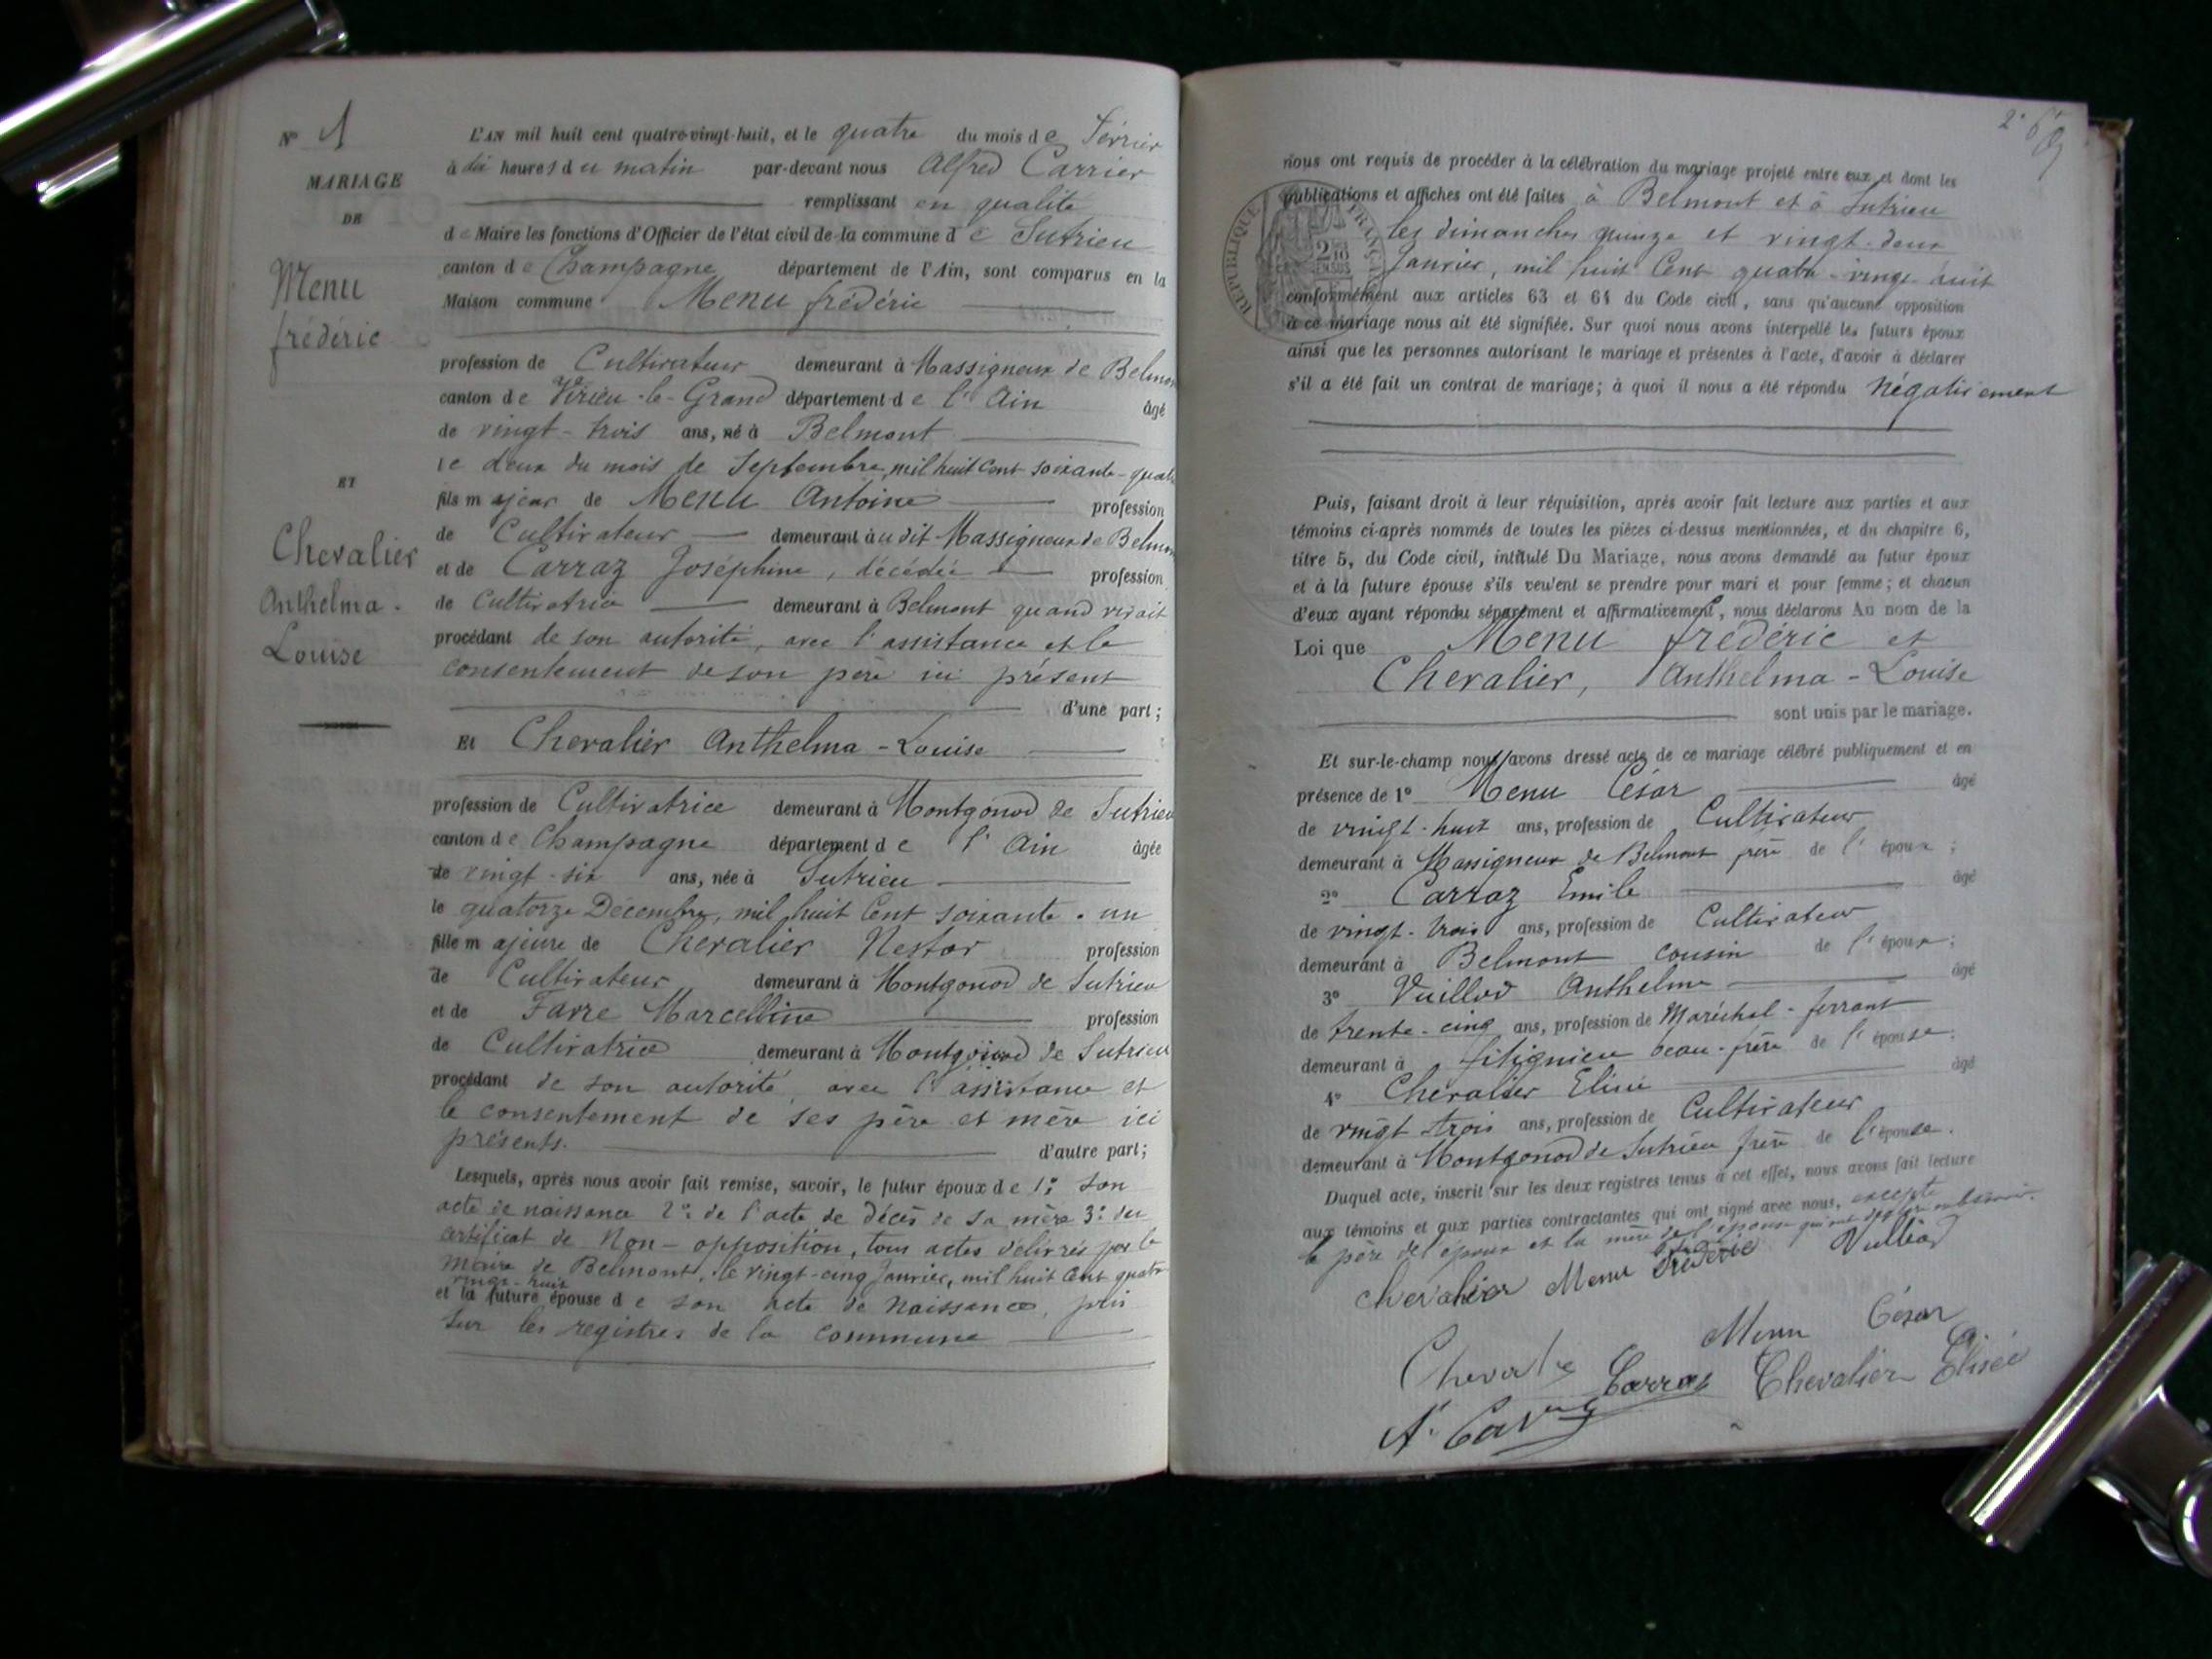 N° 1
MARIAGE
DE
Menu
frédéric
ET
Chevalier
Anthelma-
Louise
L'AN mil huit cent quatre-vingt-huit, et le quatre du mois de Février
à dix heures du matin par-devant nous Alfred Carrier
remplissant en qualité
de Maire les fonctions d'Officier de l'état civil de la commune de Sutrieu
canton de Champagne département de l'Ain, sont comparus en la
Maison commune Menu frédéric
profession de Cultivateur demeurant à Massigneux de Belmon
canton de Virieu-le-Grand département de l'Ain âgé
de vingt-trois ans, né à Belmont
le deux du mois de Septembre, mil huit Cent soixante-quatre
fils majeur de Menu Antoine profession
de Cultivateur demeurant au dit Massigneux de Belmon
et de Carraz Joséphine, décédée profession
de Cultivatrice demeurant à Belmont quand vivait
procédant de son autorité, avec l'assistance et le
consentement de son père ici présent
d'une part;
Et Chevalier Anthelma-Louise
profession de Cultivatrice demeurant à Montgonod de Sutrieu
canton de Champagne département de l'Ain âgée
de vingt-six ans, née à Sutrieu
le quatorze Décembre, mil huit Cent soixante-un
fille majeure de Chevalier Nestor profession
de Cultivateur demeurant à Montgonod de Sutrieu
et de Favre Marcelline profession
de Cultivatrice demeurant à Montgonod de Sutrieu
procédant de son autorité, avec l'assistance et
le consentement de ses père et mère ici
présents. d'autre part;
Lesquels, après nous avoir fait remise, savoir, le futur époux de 1° son
acte de naissance 2° de l'acte de décès de sa mère 3° du
certificat de Non-opposition, tous actes délivrés par le
Maire de Belmont, le vingt-cinq Janvier, mil huit Cent quatre
vingt-huit
et la future épouse de son acte de Naissance, pris
sur les registres de la commune
2e
nous ont requis de procéder à la célébration du mariage projeté entre eux et dont les
publications et affiches ont été faites à Belmont et à Sutrieu
RÉPUBLIQUE FRANÇAISE
les dimanches quinze et vingt-deux
Janvier, mil huit Cent quatre-vingt-huit
conformément aux articles 63 et 64 du Code civil, sans qu'aucune opposition
à ce mariage nous ait été signifiée. Sur quoi nous avons interpellé les futurs époux
ainsi que les personnes autorisant le mariage et présentes à l'acte, d'avoir à déclarer
s'il a été fait un contrat de mariage; à quoi il nous a été répondu Négativement
Puis, faisant droit à leur réquisition, après avoir fait lecture aux parties et aux
témoins ci-après nommés de toutes les pièces ci-dessus mentionnées, et du chapitre 6,
titre 5, du Code civil, intitulé Du Mariage, nous avons demandé au futur époux
et à la future épouse s'ils veulent se prendre pour mari et pour femme; et chacun
d'eux ayant répondu séparément et affirmativement, nous déclarons Au nom de la
Loi que Menu frédéric et
Chevalier, Anthelma-Louise
sont unis par le mariage.
Et sur-le-champ nous avons dressé acte de ce mariage célébré publiquement et en
présence de 1° Menu César âgé
de vingt-huit ans, profession de Cultivateur
demeurant à Massigneux de Belmont frère de l'époux;
2° Carraz Emile âgé
de vingt-trois ans, profession de Cultivateur
demeurant à Belmont cousin de l'époux;
3° Vuillod Anthelme âgé
de trente-cinq ans, profession de Maréchal-ferrant
demeurant à fitignieu beau-frère de l'épouse;
4° Chevalier Elisée âgé
de vingt-trois ans, profession de Cultivateur
demeurant à Montgonod de Sutrieu frère de l'épouse.
Duquel acte, inscrit sur les deux registres tenus à cet effet, nous avons fait lecture
aux témoins et aux parties contractantes qui ont signé avec nous, excepté
le père de l'époux et la mère de l'épouse qui ont
Chevalier Menu Frédéric Vulliod
Menu César
Chevalie Carraz Chevalier Elisée
A. Carrier